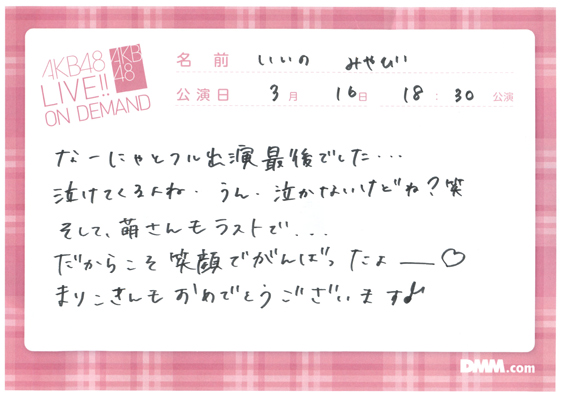 AKB48
LIVE!!
ON DEMAND
AKB
48
名前 いいの みやび
公演日 3月 16日 18:30 公演
なーにゃとフル出演最後でした...
泣けてくるよね. うん. 泣かないけどね?笑
そして、萌さんもラストで...
だからこそ笑顔でがんばったよー♡
まりこさんもおめでとうございます♪
DMM.com